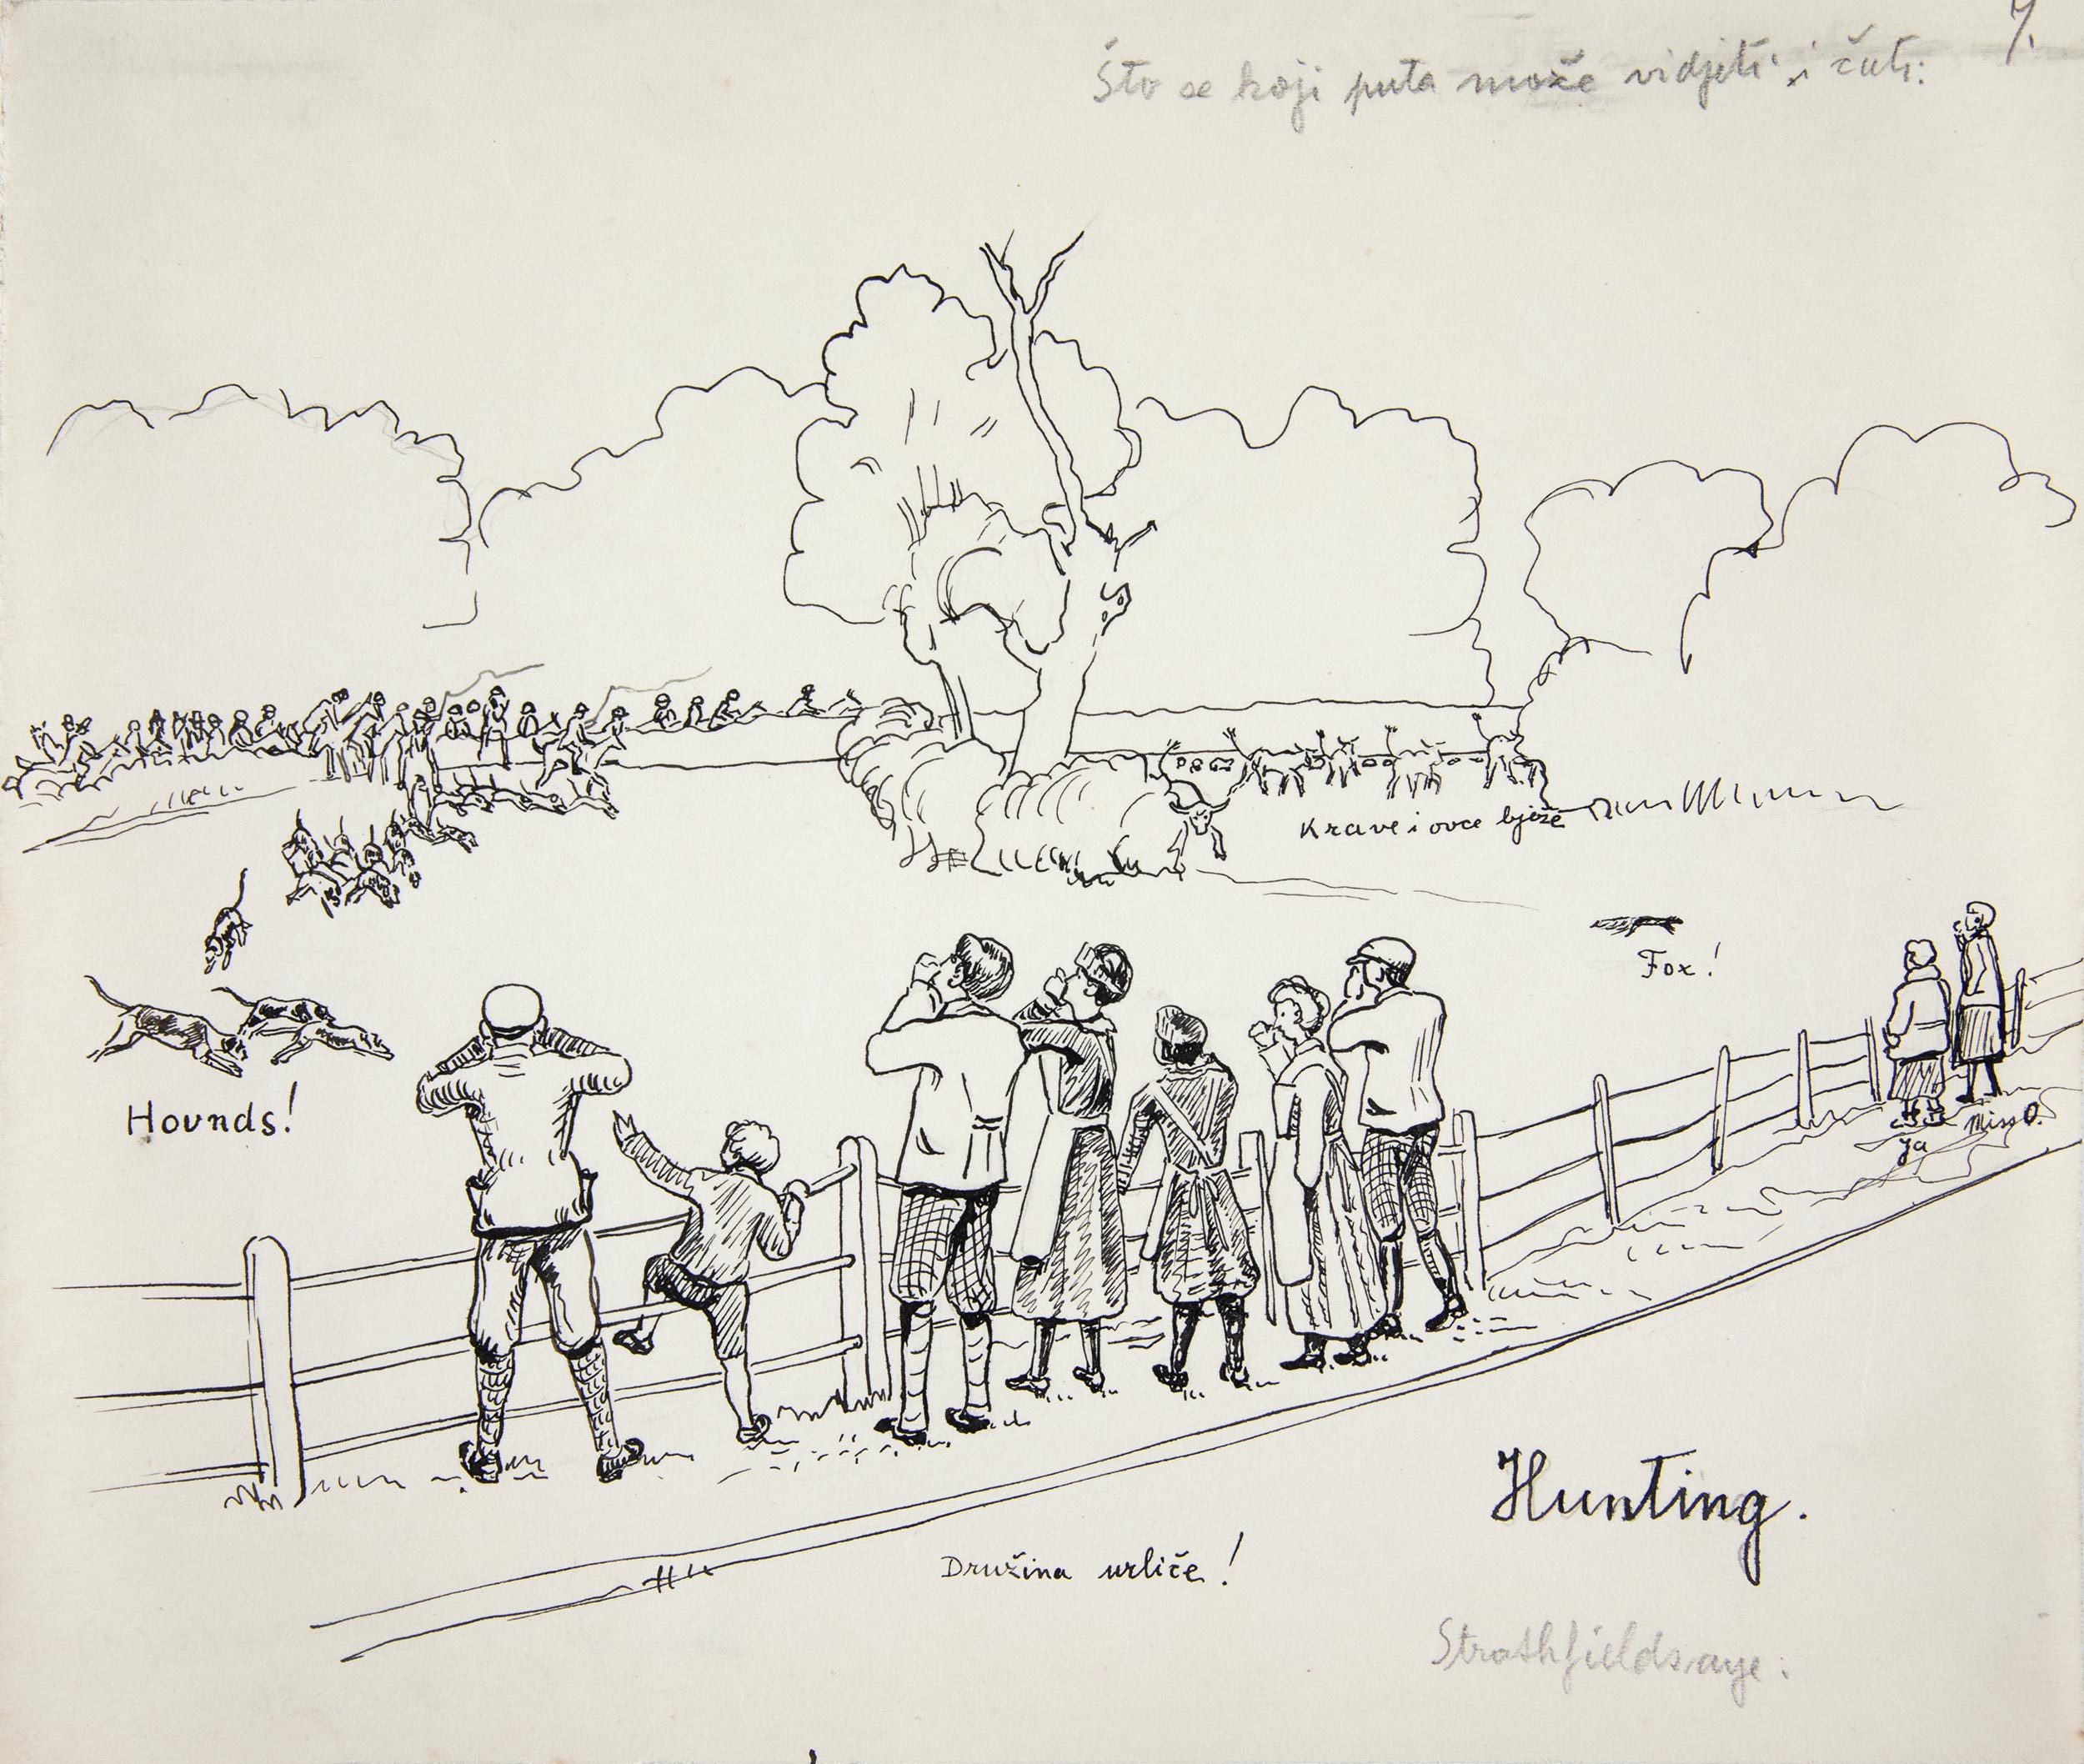 7.
Što se koji puta može vidjeti i čuti:
Krave i ovce bježe
Fox!
Hounds!
Ja
Miss O.
Hunting.
Družina urliče!
Strathfieldsaye: